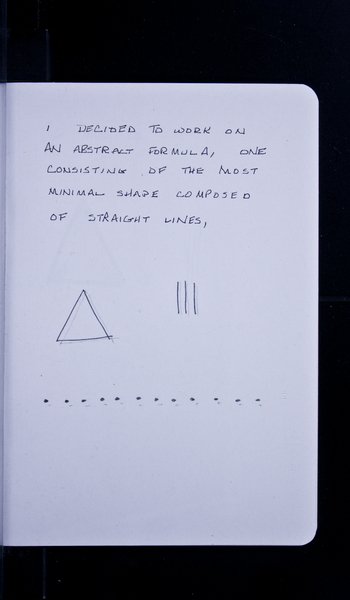 I DECIDED TO WORK ON
AN ABSTRACT FORMULA, ONE
CONSISTING OF THE MOST
MINIMAL SHAPE COMPOSED
OF STRAIGHT LINES,